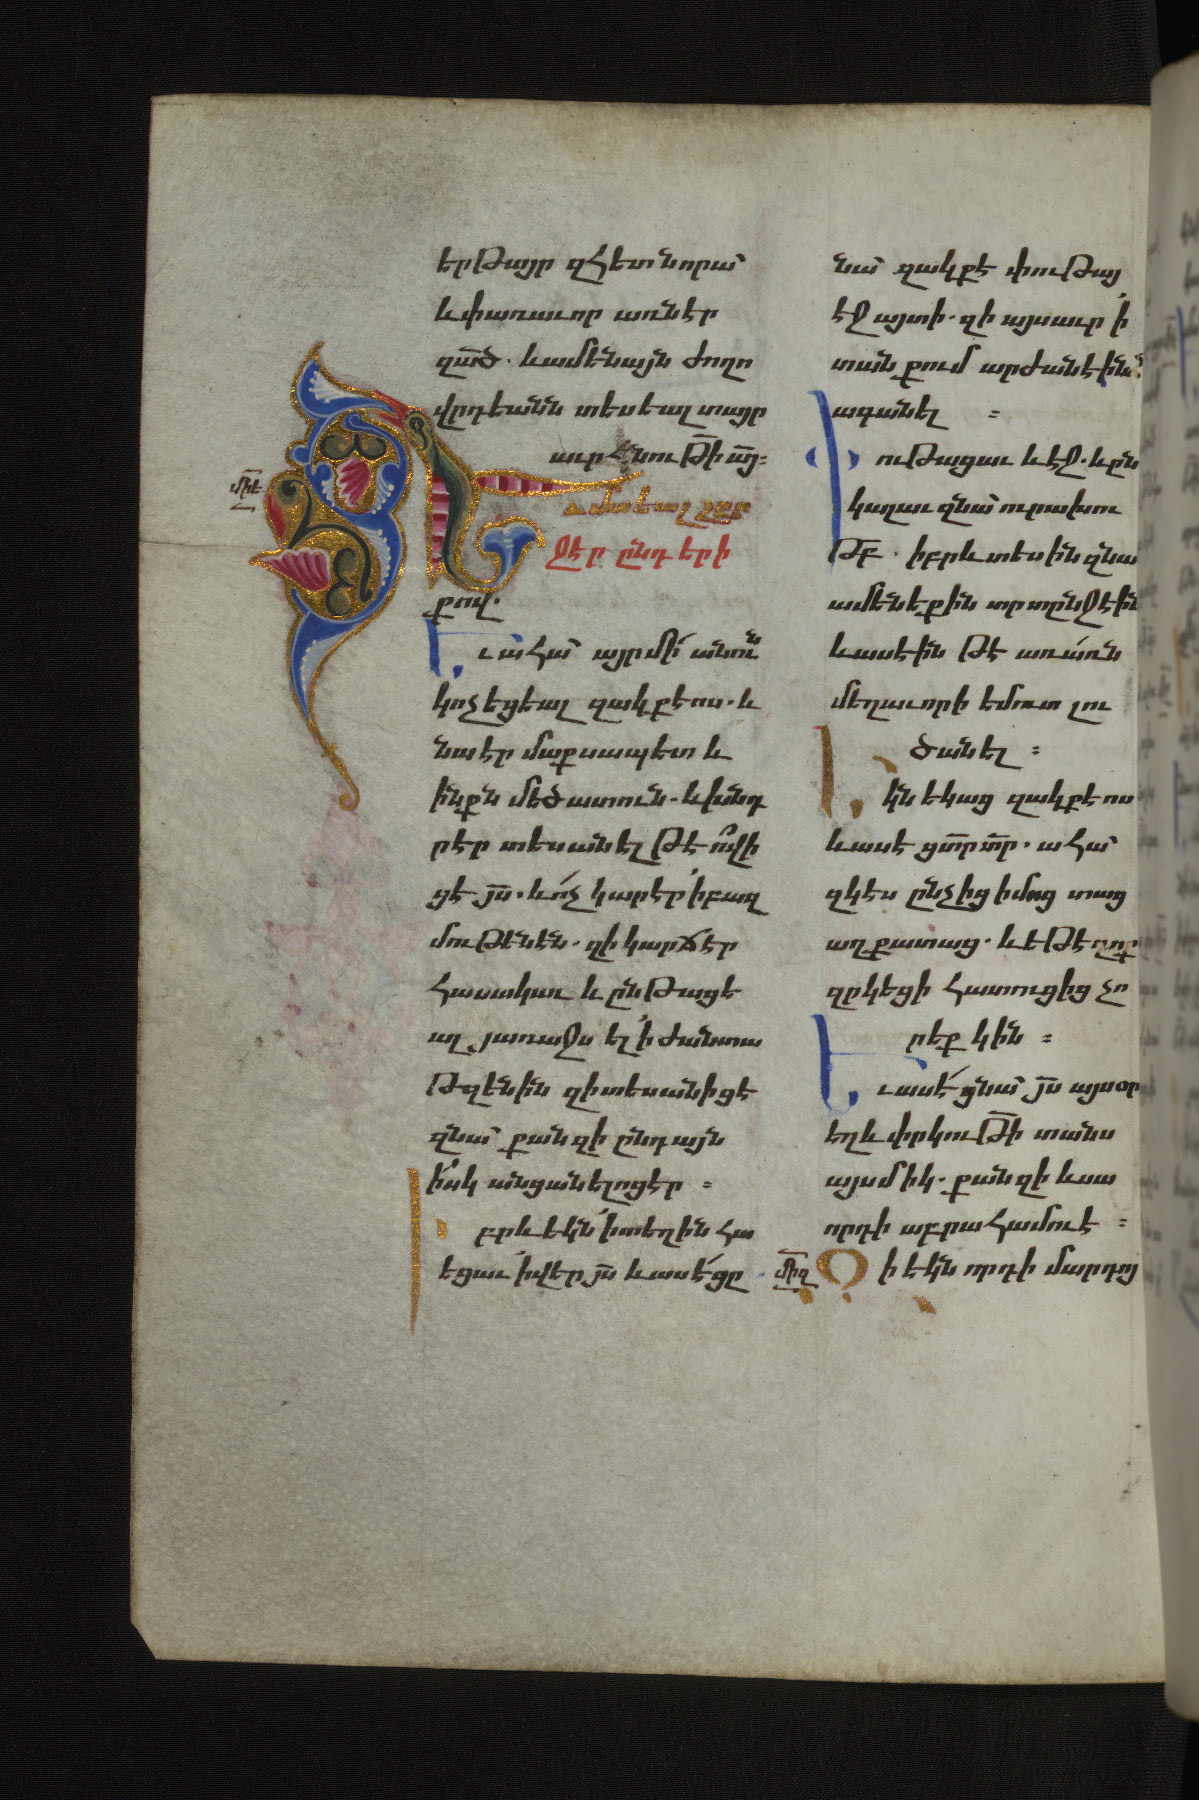 երթայր զհետ նորա՝
և փառաւոր առնէր
զա̅ծ. և ամենայն ժողո
վրդեանն տեսեալ տայր
աւրհնութի̅ ա̅յ։
մի̅ե
Եւ մտեալ շրջ
ջէր ընդ երի
քով.
Եւ ահա՝ այր մի՛ անուն
կոչեցեալ զակքէոս. և
նա էր մաքսապետ և
ինքն մեծատուն. և խնդ
րէր տեսանել թէ ո՞վ ի
ցէ յ̅ս. և ո՛չ կարէր ՛ի բազ
մութենէն. զի կարճ էր
հասակաւ և ընթացե
ալ յառաջս ել ՛ի ժանտա
թզենին զի տեսանիցէ
զնա՝ քանզի ընդ այն
ի՛սկ անցանելոց էր ։
Իբրև եկն ՛ի տեղին հա
եցաւ ՛ի վեր յ̅ս և ասէ՛ ցը
նա՝ զակքէ փութայ
է՛ջ այտի. զի այսաւր ՛ի
տան քում արժան է ինձ
ագանել ։
Փութացաւ և էջ. և ըն
կալաւ զնա՝ ուրախու
թբ̅. իբրև տեսին զնա
ամենեքին տրտընջէին
և ասէին թէ առ ա՛ռն
մեղաւորի եմուտ լու
ծանել ։
Եկն եկաց զակքէոս
և ասէ ցտ̅ր տ̅ր. ահա՝
զկէս ընչից իմոց տաց
աղքատաց. և եթէ զոք
զըկեցի հատուցից չո
րեքկին ։
Եւ ասէ՛ ցնա՝ յ̅ս այսօր
եղև փրկութի̅ տանս
այսմիկ. քանզի և սա
որդի աբրահամու է ։
մի̅զ
Զի եկն որդի մարդոյ